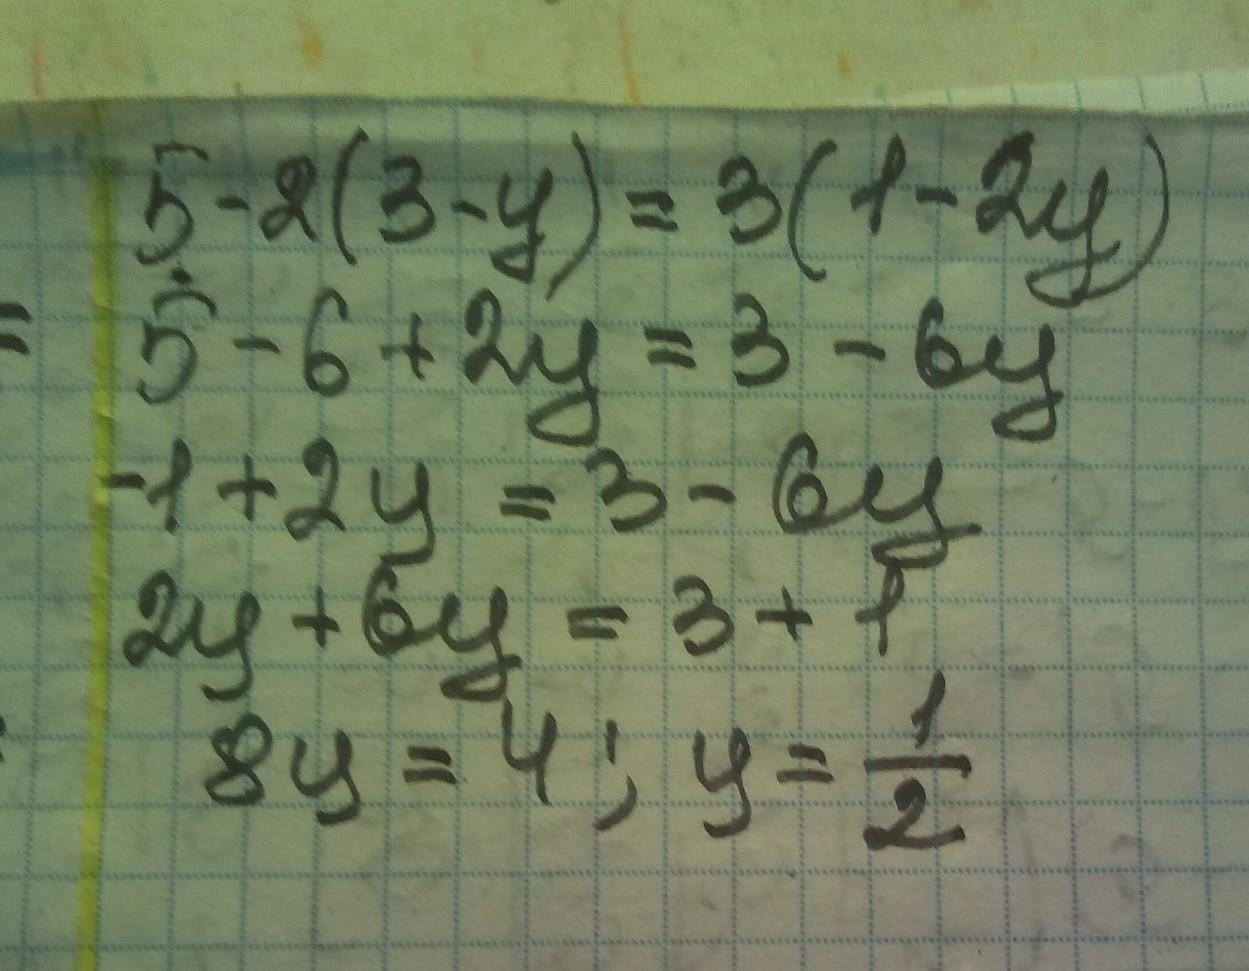 5-2(3-y)=3(1-2y)
5-6+2y=3-6y
-1+2y=3-6y
2y+6y=3+1
8y=4; y=1/2